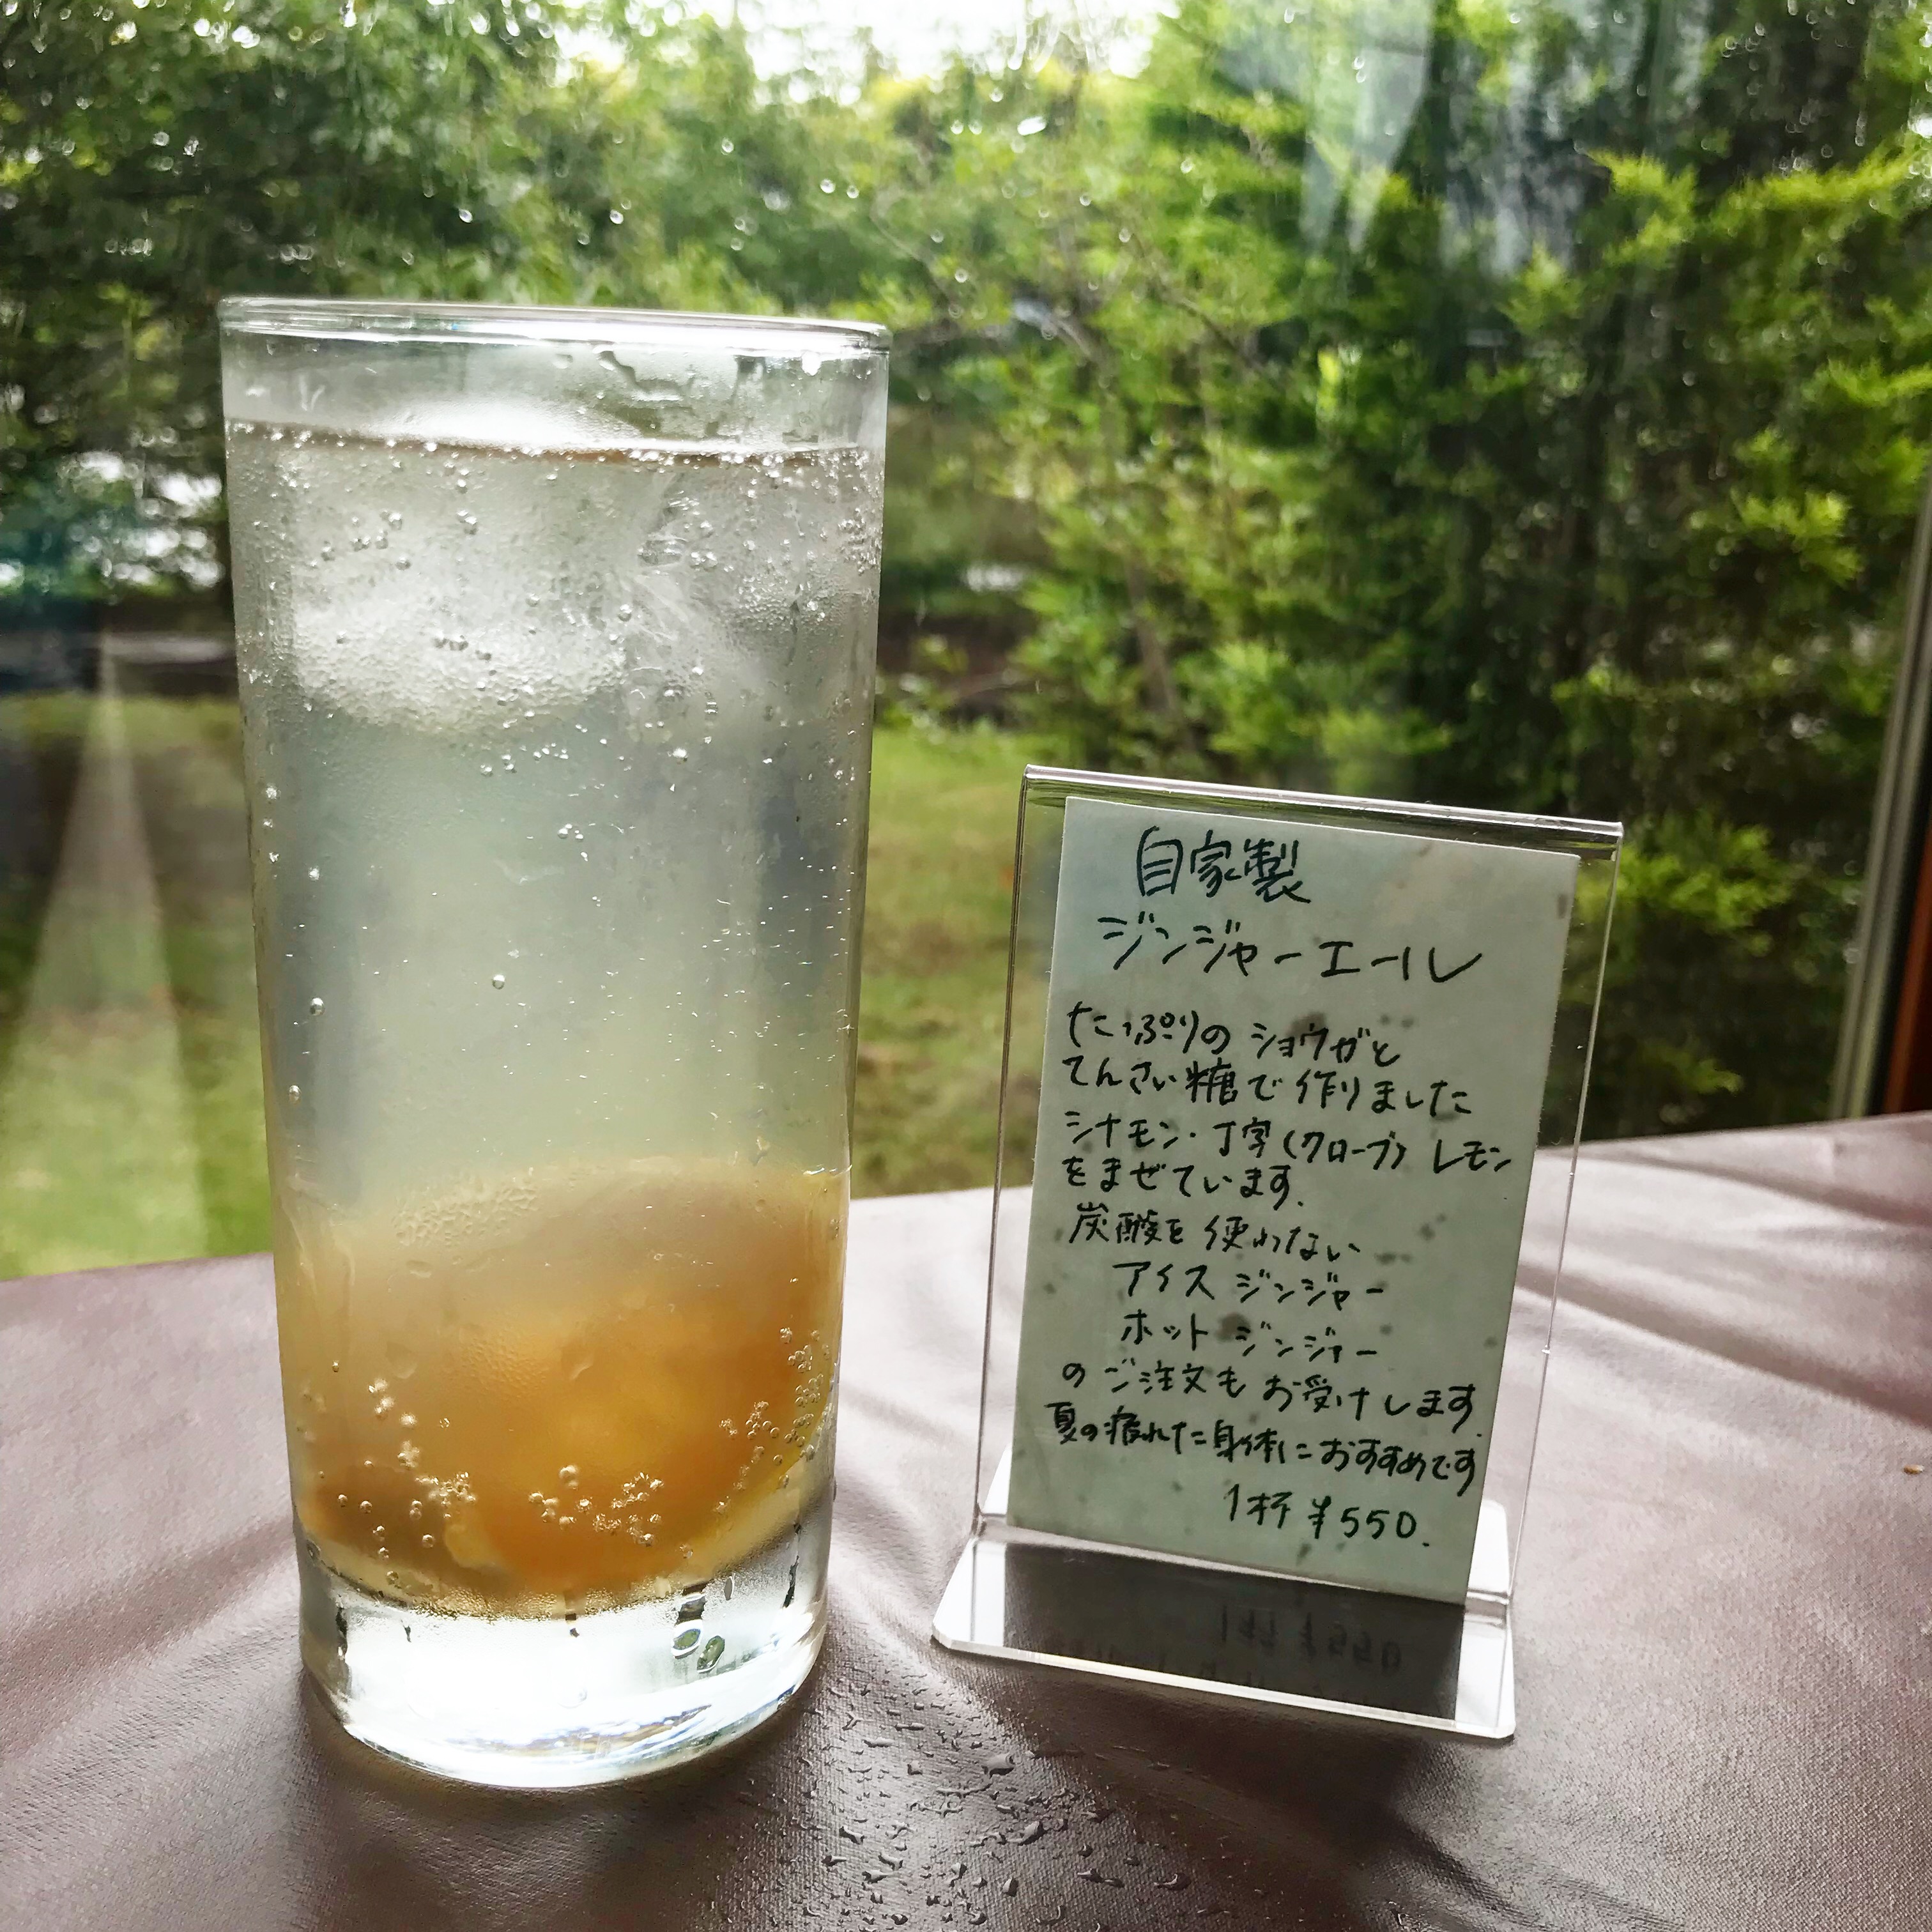 自家製
ジンジャーエール
たっぷりのショウガと
てんさい糖で作りました
シナモン・丁字(クローブ)レモン
をまぜています.
炭酸を使わない
アイスジンジャー
ホットジンジャー
のご注文もお受けします.
夏の疲れた身体におすすめです
1杯¥550.